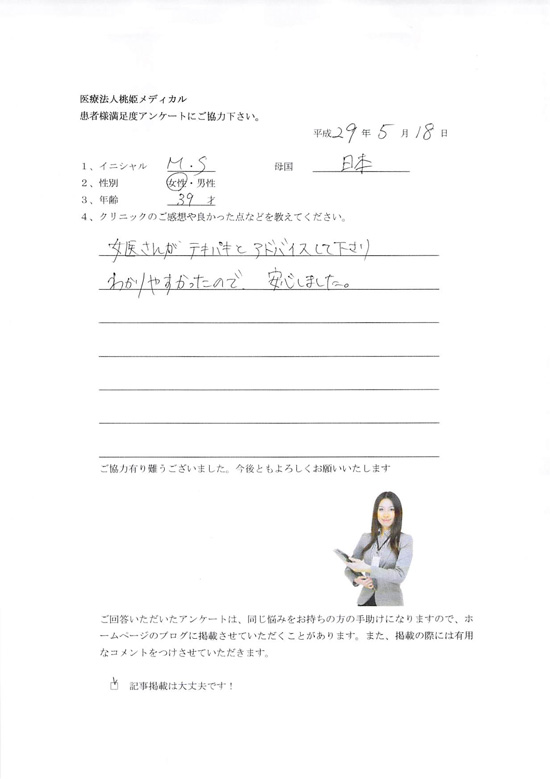 医療法人桃姫メディカル
患者様満足度アンケートにご協力下さい。
平成29年5月18日
1、イニシャル M.S 母国 日本
2、性別 女性・男性
3、年齢 39才
4、クリニックのご感想や良かった点などを教えてください。
女医さんが テキパキと アドバイスして下さり
わかりやすかったので、安心しました。
ご協力有り難うございました。今後ともよろしくお願いいたします
ご回答いただいたアンケートは、同じ悩みをお持ちの方の手助けになりますので、ホ
ームページのブログに掲載させていただくことがあります。また、掲載の際には有用
なコメントをつけさせていただきます。
記事掲載は大丈夫です！